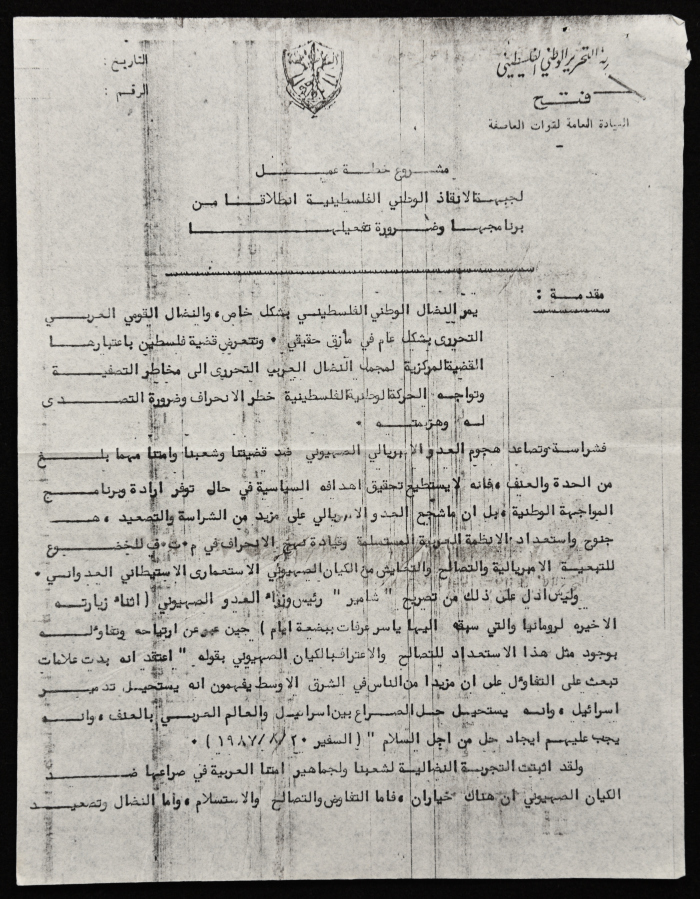 التحرير الوطني الفلسطيني
فتح
القيادة العامة لقوات العاصفة
التاريخ :
الرقم :
مشروع خطة عمل
لجبهة الانقاذ الوطني الفلسطينية انطلاقا من
برنامجها وضرورة تفعيلها
مقدمة :
يمر النضال الوطني الفلسطيني بشكل خاص، والنضال القومي العربي
التحررى بشكل عام في مأزق حقيقي . وتتعرض قضية فلسطين باعتبارها
القضية المركزية لمجمل النضال العربي التحررى الى مخاطر التصفية
وتواجه الحركة الوطنية الفلسطينية خطر الانحراف وضرورة التصدى
له وهزيمته .
فشراسة وتصاعد هجوم العدو الامبريالي الصهيوني ضد قضيتنا وشعبنا وامتنا مهما بلغ
من الحدة والعنف ، فانه لا يستطيع تحقيق اهدافه السياسية في حال توفر ارادة وبرنامج
المواجهة الوطنية ، بل ان ماشجع العدو الامبريالي على مزيد من الشراسة والتصعيد ، هو
جنوح واستعداد الانظمة العربية المستسلمة وقيادة نهج الانحراف في م.ت.ف للخضوع
للتبعية الامبريالية والتصالح والتعايش من الكيان الصهيوني الاستعمارى الاستيطاني العدواني .
وليس ادل على ذلك من تصريح " شامير " رئيس وزراء العدو الصهيوني ( اثناء زيارته
الاخيره لرومانيا والتي سبقه اليها ياسر عرفات ببضعة ايام ) حين عبر عن ارتياحه وتفاؤله
بوجود مثل هذا الاستعداد للتصالح والاعتراف بالكيان الصهيوني بقوله " اعتقد انه بدت علامات
تبعث على التفاؤل على ان مزيدا من الناس في الشرق الاوسط يفهمون انه يستحيل تدمير
اسرائيل ، وانه يستحيل حل الصراع بين اسرائيل والعالم العربي بالعنف ، وانه
يجب عليهم ايجاد حل من اجل السلام " ( السفير ٢٠/٨/١٩٨٧ ) .
ولقد اثبتت التجربة النضالية لشعبنا ولجماهير امتنا العربية في صراعها ضد
الكيان الصهيوني ان هناك خياران ، فاما التفاوض والتصالح والاستسلام ، واما النضال وتصعيد